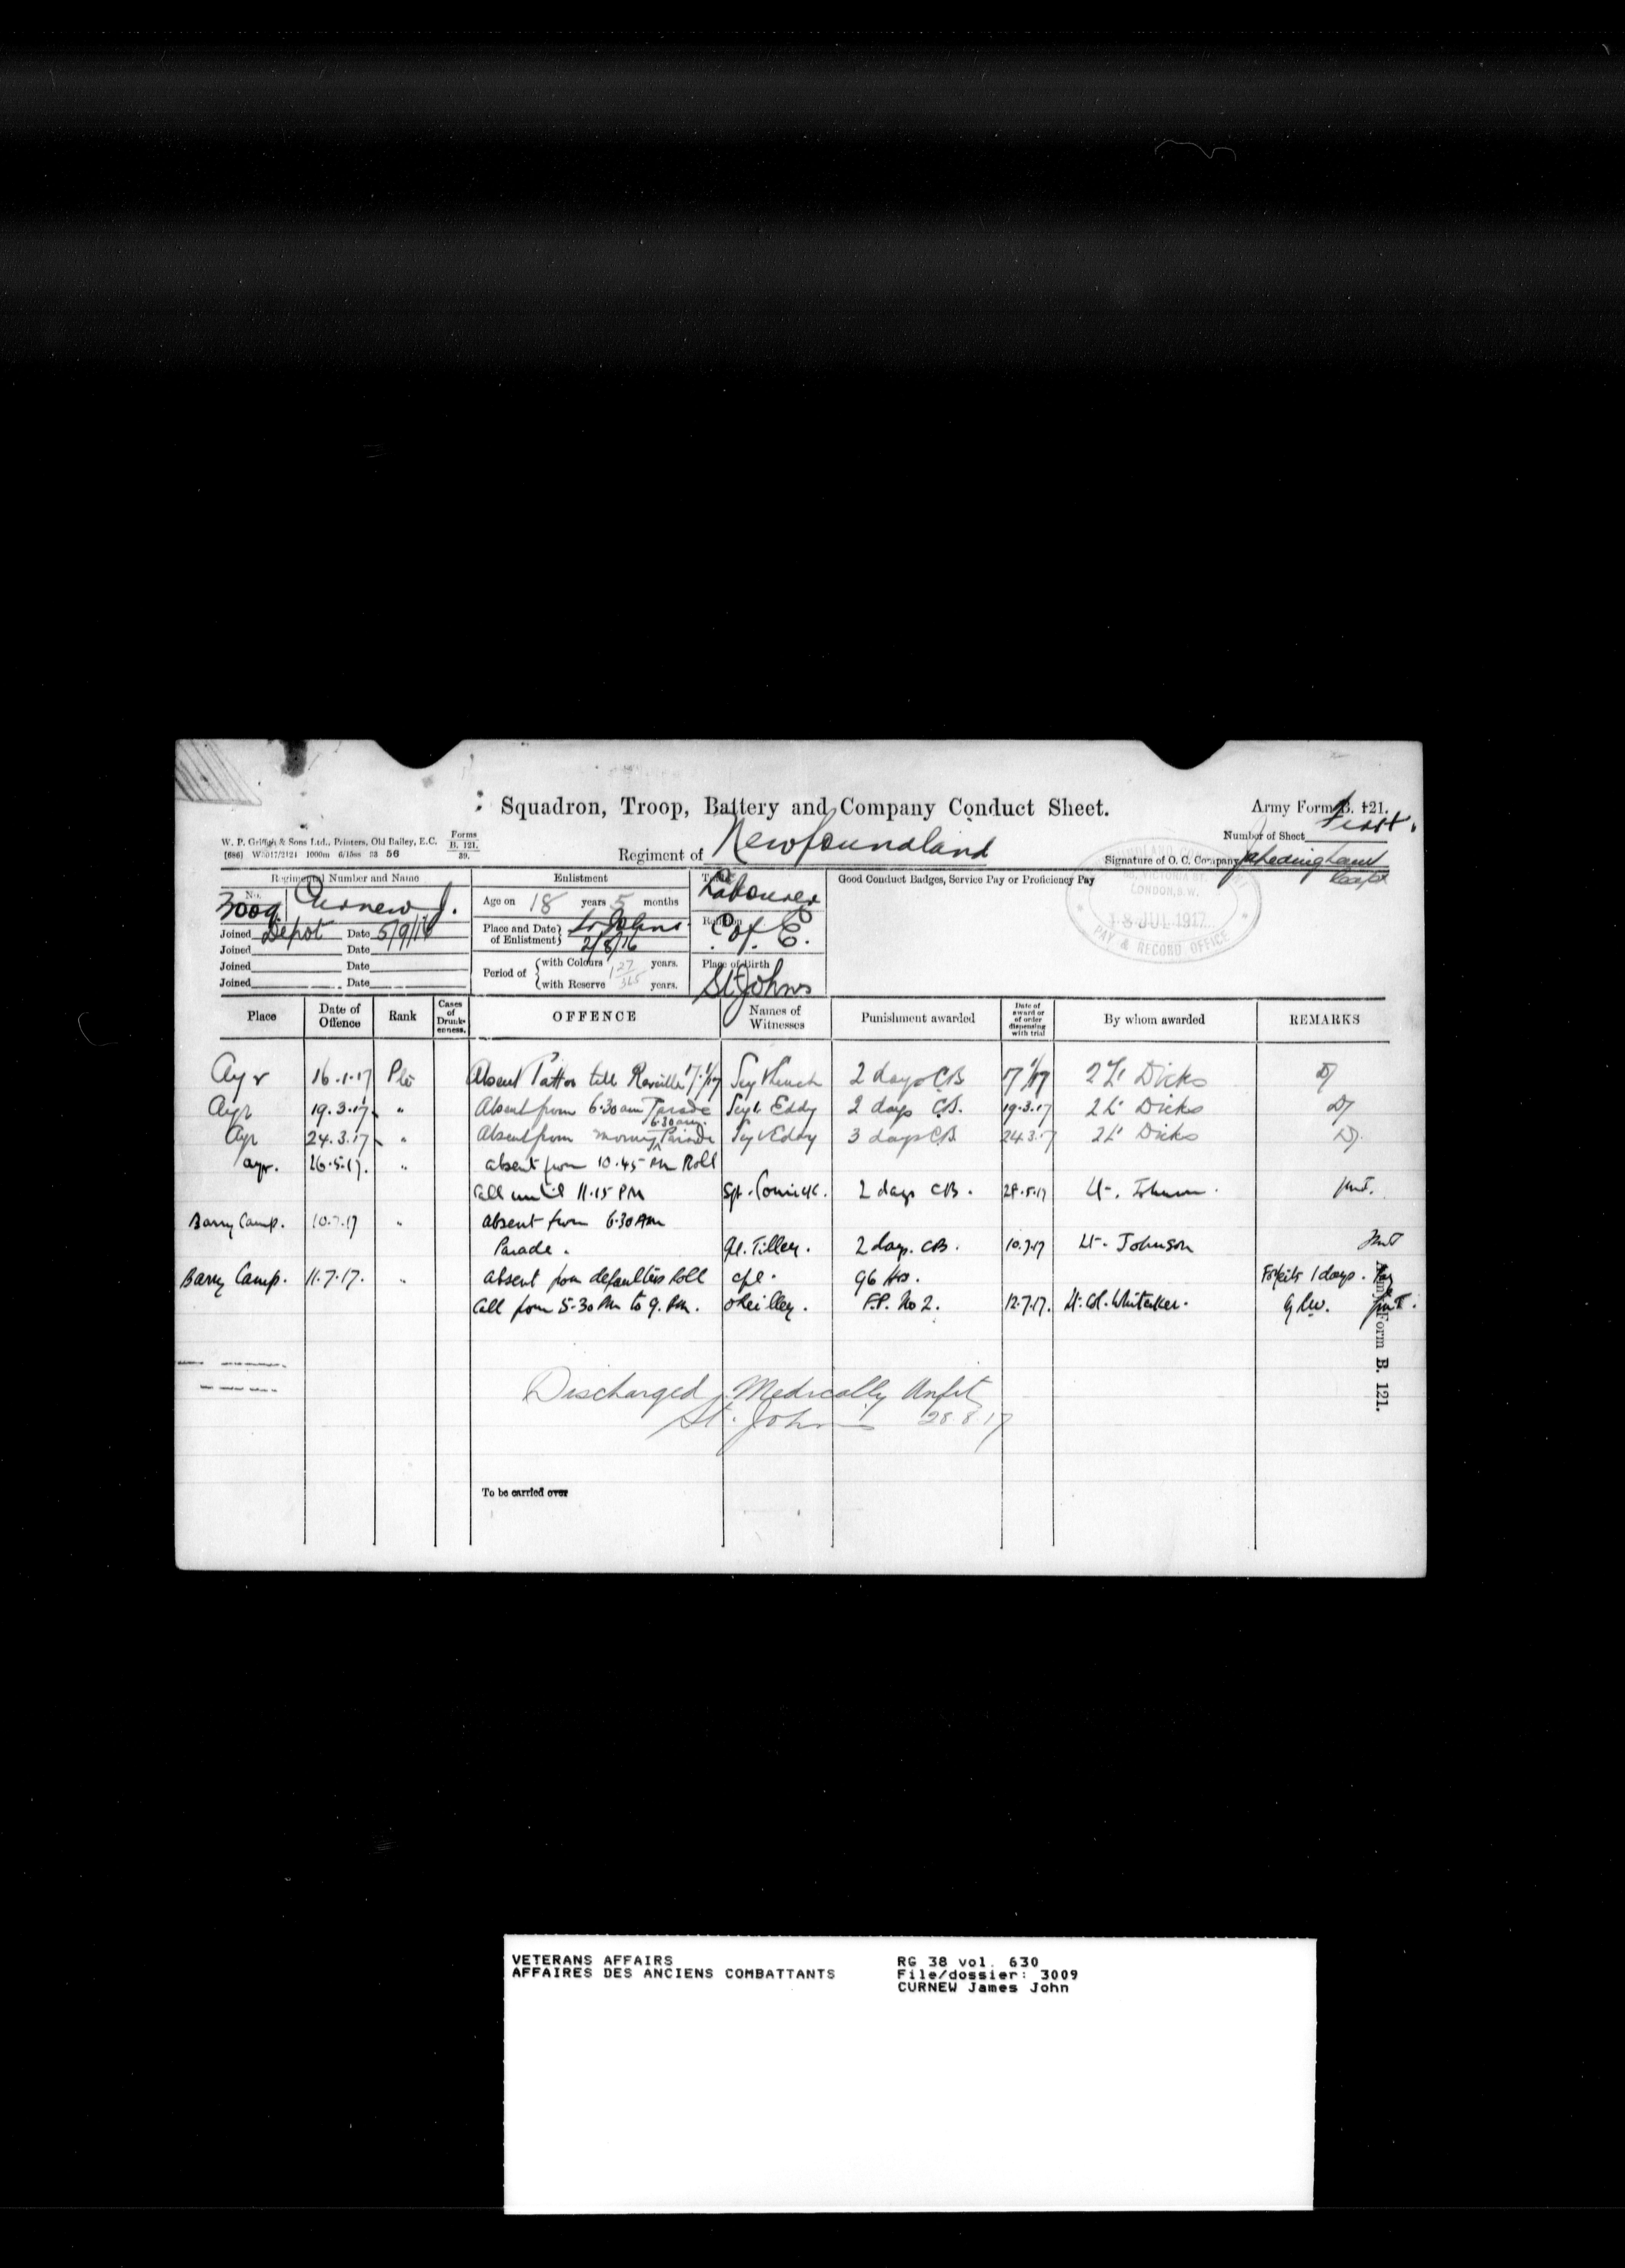 Squadron, Troop, Battery and Company Conduct Sheet.
Army Form B. 121.
W. P. Griffith & Sons Ltd., Printers, Old Bailey, E.C.
Forms B. 121. 39.
Regiment of Newfoundland
Number of Sheet First.
Signature of O. C. Company Capt
Regimental Number and Name
No. 3009 Curnew J.
Joined Depot Date 5/9/16
Joined Date
Joined Date
Joined Date
Enlistment
Age on 18 years 5 months
Place and Date of Enlistment St Johns. 2/8/16
Period of with Colours 1 27/365 years.
with Reserve years.
Trade Labourer
Religion C of E.
Place of Birth St Johns
Good Conduct Badges, Service Pay or Proficiency Pay
LONDON, S.W.
18 JUL 1917
PAY & RECORD OFFICE
Place Date of Offence Rank Cases of Drunkenness. OFFENCE Names of Witnesses Punishment awarded Date of award or of order dispensing with trial By whom awarded REMARKS
Ayr 16.1.17 Pte Absent Tattoo till Reveille 17.1/17 2 days CB 17/1/17 2 Lt Dicks D
Ayr 19.3.17 " Absent from 6.30 am Parade Sergt. Eddy 2 days CB. 19.3.17 2 Lt Dicks D
Ayr 24.3.17 " Absent from morning 6.30 am. Parade Sergt Eddy 3 days CB 24.3.17 2 Lt Dicks D.
Ayr. 26.5.17. " absent from 10.45 PM Roll
Call until 11.15 PM Sgt. 2 days CB. 28.5.17 Lt.
Barry Camp. 10.7.17 " absent from 6.30 AM
Parade. Tilley. 2 days. CB. 10.7.17 Lt. Johnson
Barry Camp. 11.7.17. " absent from defaulters Roll Cpl. 96 Hrs. Forfeits 1 days. Pay
Call from 5.30 PM to 9. PM. OReilley. F.P. No 2. 12.7.17. Lt. Col. Whitaker.
Army Form B. 121.
Discharged Medically Unfit
St. Johns 28.8.17
To be carried over
VETERANS AFFAIRS
AFFAIRES DES ANCIENS COMBATTANTS
RG 38 vol. 630
File/dossier: 3009
CURNEW James John